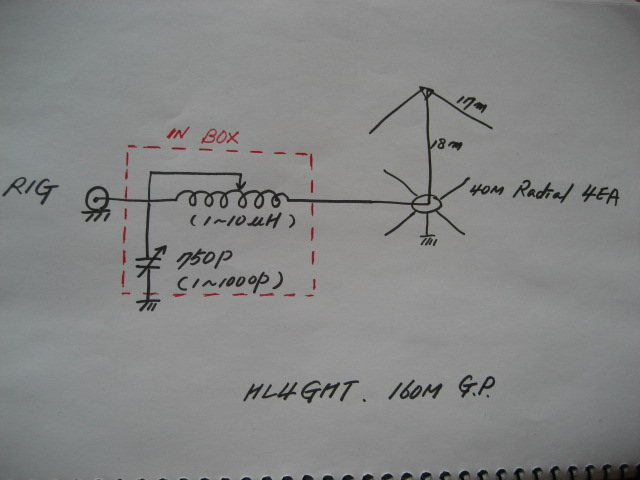 IN BOX
RIG
17m
18m
(1~10μH)
40M Radial 4EA
750P
(1~1000P)
HL4GHT. 160M G.P.